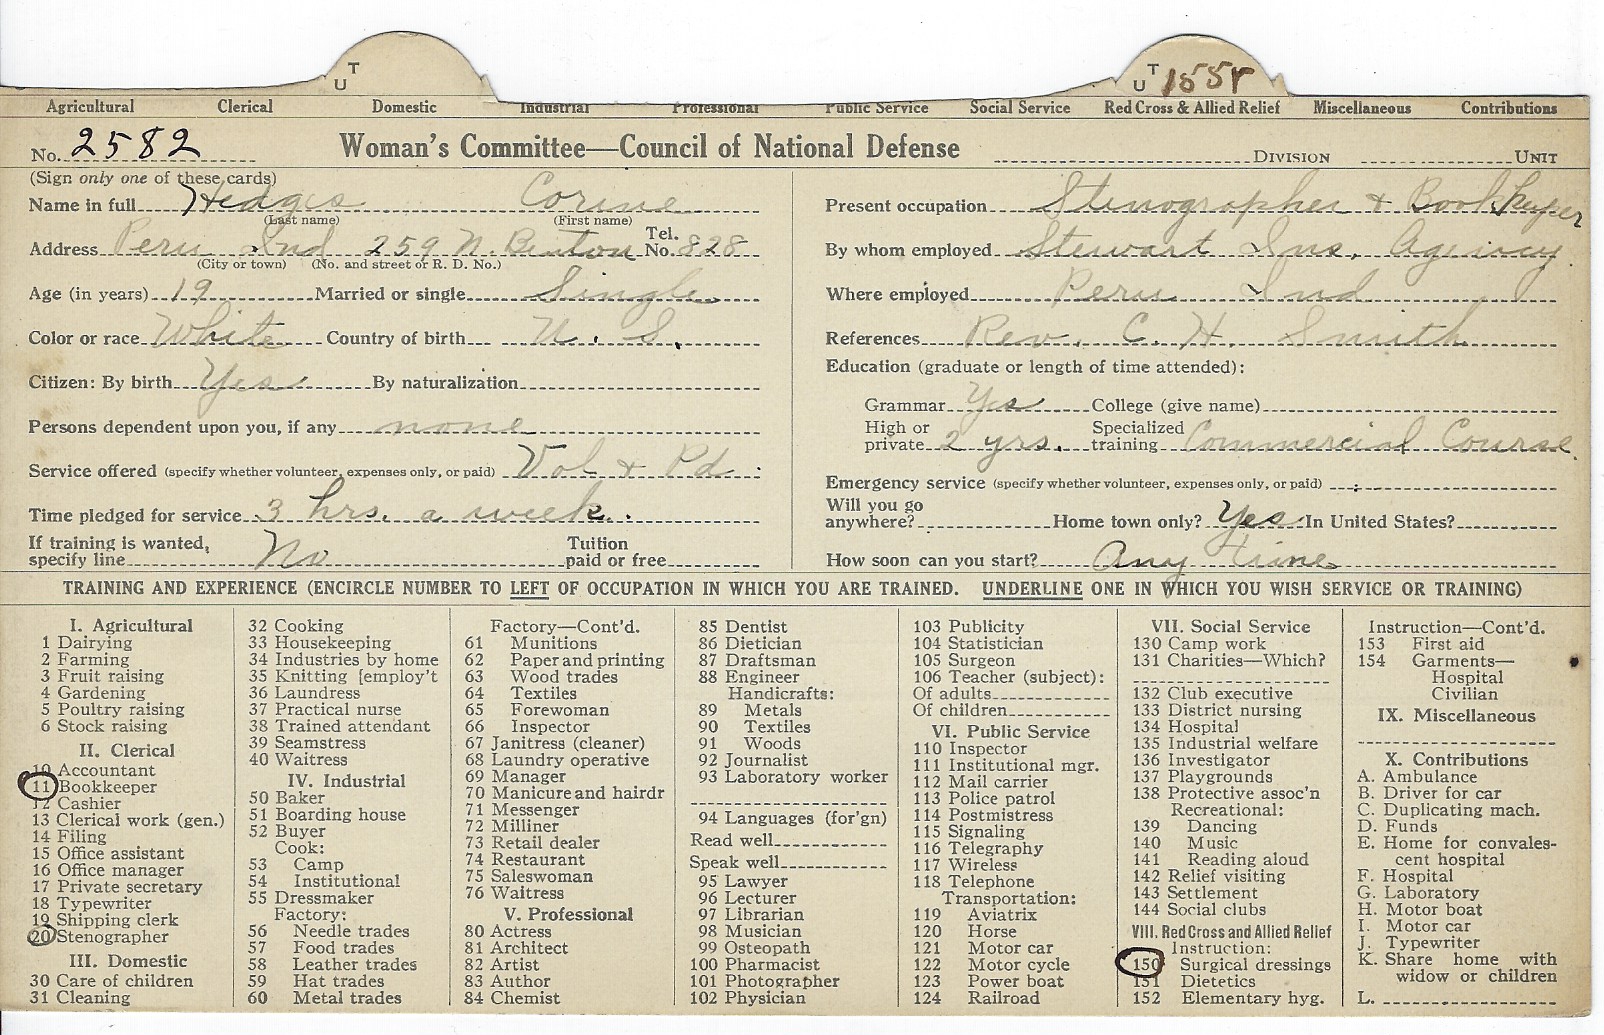 U T
U T 155r
Agricultural Clerical Domestic Industrial Professional Public Service Social Service Red Cross & Allied Relief Miscellaneous Contributions
No. 2582 Woman's Committee—Council of National Defense DIVISION UNIT
(Sign only one of these cards)
Name in full Hedges Corine
(Last name) (First name)
Address Peru Ind 259 N. Benton Tel. No. 828
(City or town) (No. and street or R. D. No.)
Age (in years) 19 Married or single Single
Color or race White Country of birth U. S.
Citizen: By birth Yes By naturalization
Persons dependent upon you, if any none
Service offered (specify whether volunteer, expenses only, or paid) Vol & Pd
Time pledged for service 3 hrs. a week.
If training is wanted, specify line No Tuition paid or free
Present occupation Stenographer & Bookkeeper
By whom employed Stewart Ins. Agency
Where employed Peru Ind
References Rev. C. H. Smith
Education (graduate or length of time attended):
Grammar Yes College (give name)
High or private 2 yrs. Specialized training Commercial Course.
Emergency service (specify whether volunteer, expenses only, or paid)
Will you go anywhere? Home town only? Yes In United States?
How soon can you start? Any time
TRAINING AND EXPERIENCE (ENCIRCLE NUMBER TO LEFT OF OCCUPATION IN WHICH YOU ARE TRAINED. UNDERLINE ONE IN WHICH YOU WISH SERVICE OR TRAINING)
I. Agricultural
1 Dairying
2 Farming
3 Fruit raising
4 Gardening
5 Poultry raising
6 Stock raising
II. Clerical
10 Accountant
11 Bookkeeper
12 Cashier
13 Clerical work (gen.)
14 Filing
15 Office assistant
16 Office manager
17 Private secretary
18 Typewriter
19 Shipping clerk
20 Stenographer
III. Domestic
30 Care of children
31 Cleaning
32 Cooking
33 Housekeeping
34 Industries by home
35 Knitting [employ't
36 Laundress
37 Practical nurse
38 Trained attendant
39 Seamstress
40 Waitress
IV. Industrial
50 Baker
51 Boarding house
52 Buyer
Cook:
53 Camp
54 Institutional
55 Dressmaker
Factory:
56 Needle trades
57 Food trades
58 Leather trades
59 Hat trades
60 Metal trades
Factory—Cont'd.
61 Munitions
62 Paper and printing
63 Wood trades
64 Textiles
65 Forewoman
66 Inspector
67 Janitress (cleaner)
68 Laundry operative
69 Manager
70 Manicure and hairdr
71 Messenger
72 Milliner
73 Retail dealer
74 Restaurant
75 Saleswoman
76 Waitress
V. Professional
80 Actress
81 Architect
82 Artist
83 Author
84 Chemist
85 Dentist
86 Dietician
87 Draftsman
88 Engineer
Handicrafts:
89 Metals
90 Textiles
91 Woods
92 Journalist
93 Laboratory worker
94 Languages (for'gn)
Read well
Speak well
95 Lawyer
96 Lecturer
97 Librarian
98 Musician
99 Osteopath
100 Pharmacist
101 Photographer
102 Physician
103 Publicity
104 Statistician
105 Surgeon
106 Teacher (subject):
Of adults
Of children
VI. Public Service
110 Inspector
111 Institutional mgr.
112 Mail carrier
113 Police patrol
114 Postmistress
115 Signaling
116 Telegraphy
117 Wireless
118 Telephone
Transportation:
119 Aviatrix
120 Horse
121 Motor car
122 Motor cycle
123 Power boat
124 Railroad
VII. Social Service
130 Camp work
131 Charities—Which?
132 Club executive
133 District nursing
134 Hospital
135 Industrial welfare
136 Investigator
137 Playgrounds
138 Protective assoc'n
Recreational:
139 Dancing
140 Music
141 Reading aloud
142 Relief visiting
143 Settlement
144 Social clubs
VIII. Red Cross and Allied Relief
Instruction:
150 Surgical dressings
151 Dietetics
152 Elementary hyg.
Instruction—Cont'd.
153 First aid
154 Garments—
Hospital
Civilian
IX. Miscellaneous
X. Contributions
A. Ambulance
B. Driver for car
C. Duplicating mach.
D. Funds
E. Home for convales-
cent hospital
F. Hospital
G. Laboratory
H. Motor boat
I. Motor car
J. Typewriter
K. Share home with
widow or children
L.